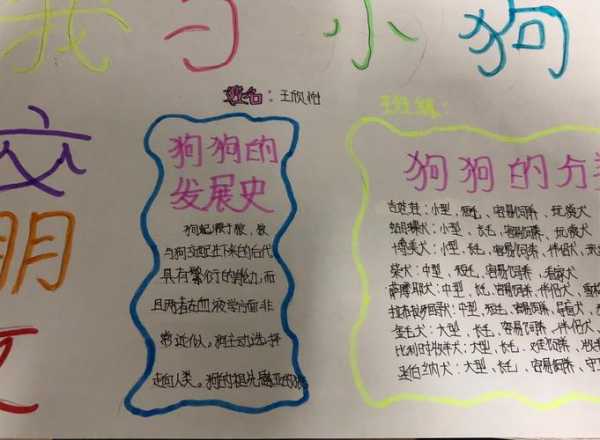 我与小狗
交
朋
友
姓名：王欣
班级：
狗狗的
发展史
狗起源于狼，狼
与狗交配生下来的后代
具有繁衍的能力，而
且两者在血液学方面非
常近似。狗主动选择
走向人类。狗的祖先
狗狗的分类
吉娃娃：小型、短毛、容易饲养、玩赏犬
蝴蝶犬：小型、长毛、容易饲养、玩赏犬
博美犬：小型、长毛、容易饲养、伴侣犬、玩
柴犬：中型、短毛、容易饲养、
萨摩耶犬：中型、长毛、容易饲养、伴侣犬、
拉布拉多回猎：中型、短毛、容易饲养、导盲犬、
金毛犬：大型、长毛、容易饲养、伴侣犬、
比利时牧羊犬：大型、长毛、难饲养、
圣伯纳犬：大型、长毛、容易饲养、守卫